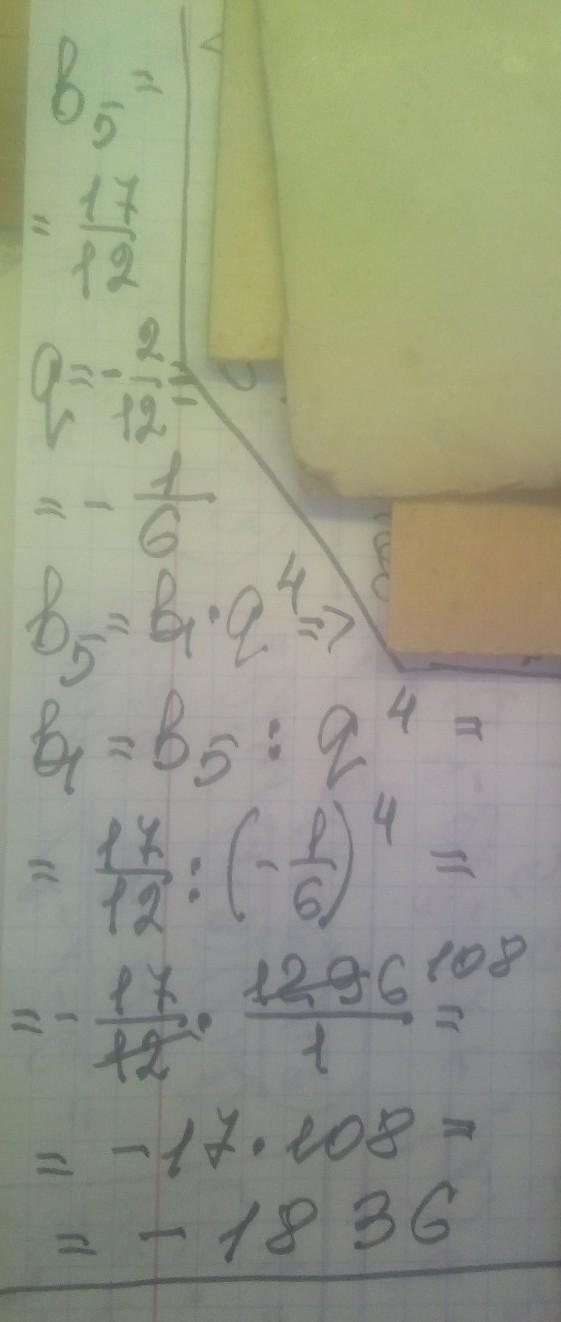 b₅ =
= 17/12
q = - 2/12 =
= - 1/6
b₅ = b₁ · q⁴ =>
b₁ = b₅ : q⁴ =
= 17/12 : (- 1/6)⁴ =
= - 17/12 · 1296/1 108 =
= - 17 · 108 =
= - 1836